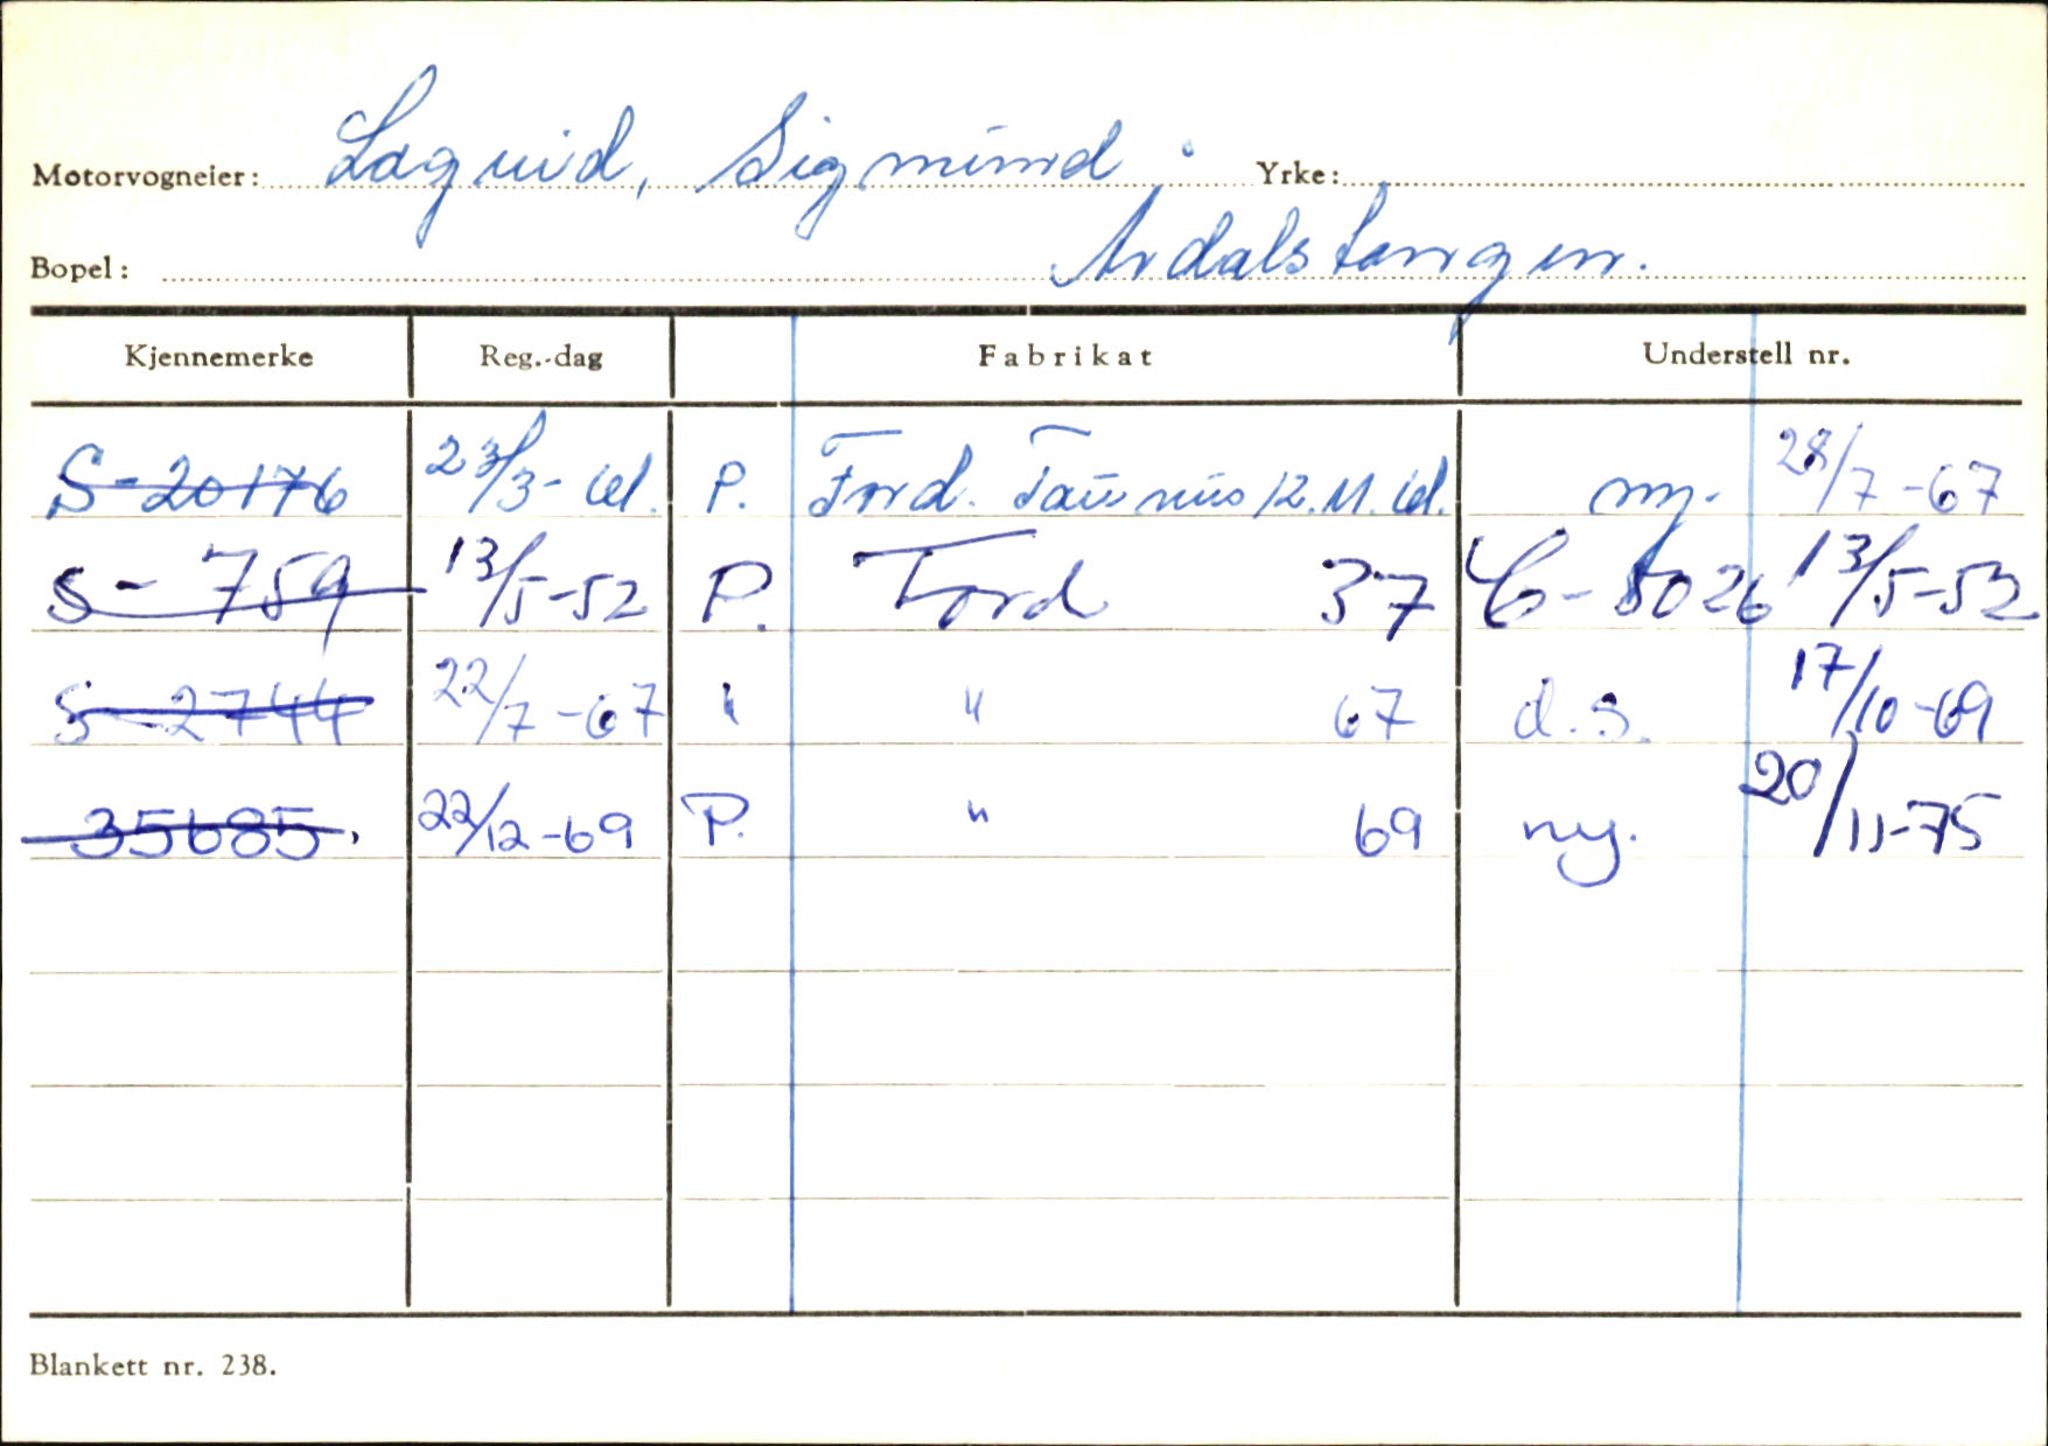 Motorvogneier: Lagvid, Sigmund. Yrke:
Bopel: Årdalstangen.
Kjennemerke Reg.-dag Fabrikat Understell nr.
S-20176 23/3-61. P. Ford. Taunus 12.M.61. ny. 28/7-67
S-759 13/5-52 P. Ford 37 C-5026 13/5-52
S-2744 22/7-67 " " 67 d.s. 17/10-69
35685. 22/12-69 P. " 69 ny. 20/11-75
Blankett nr. 238.